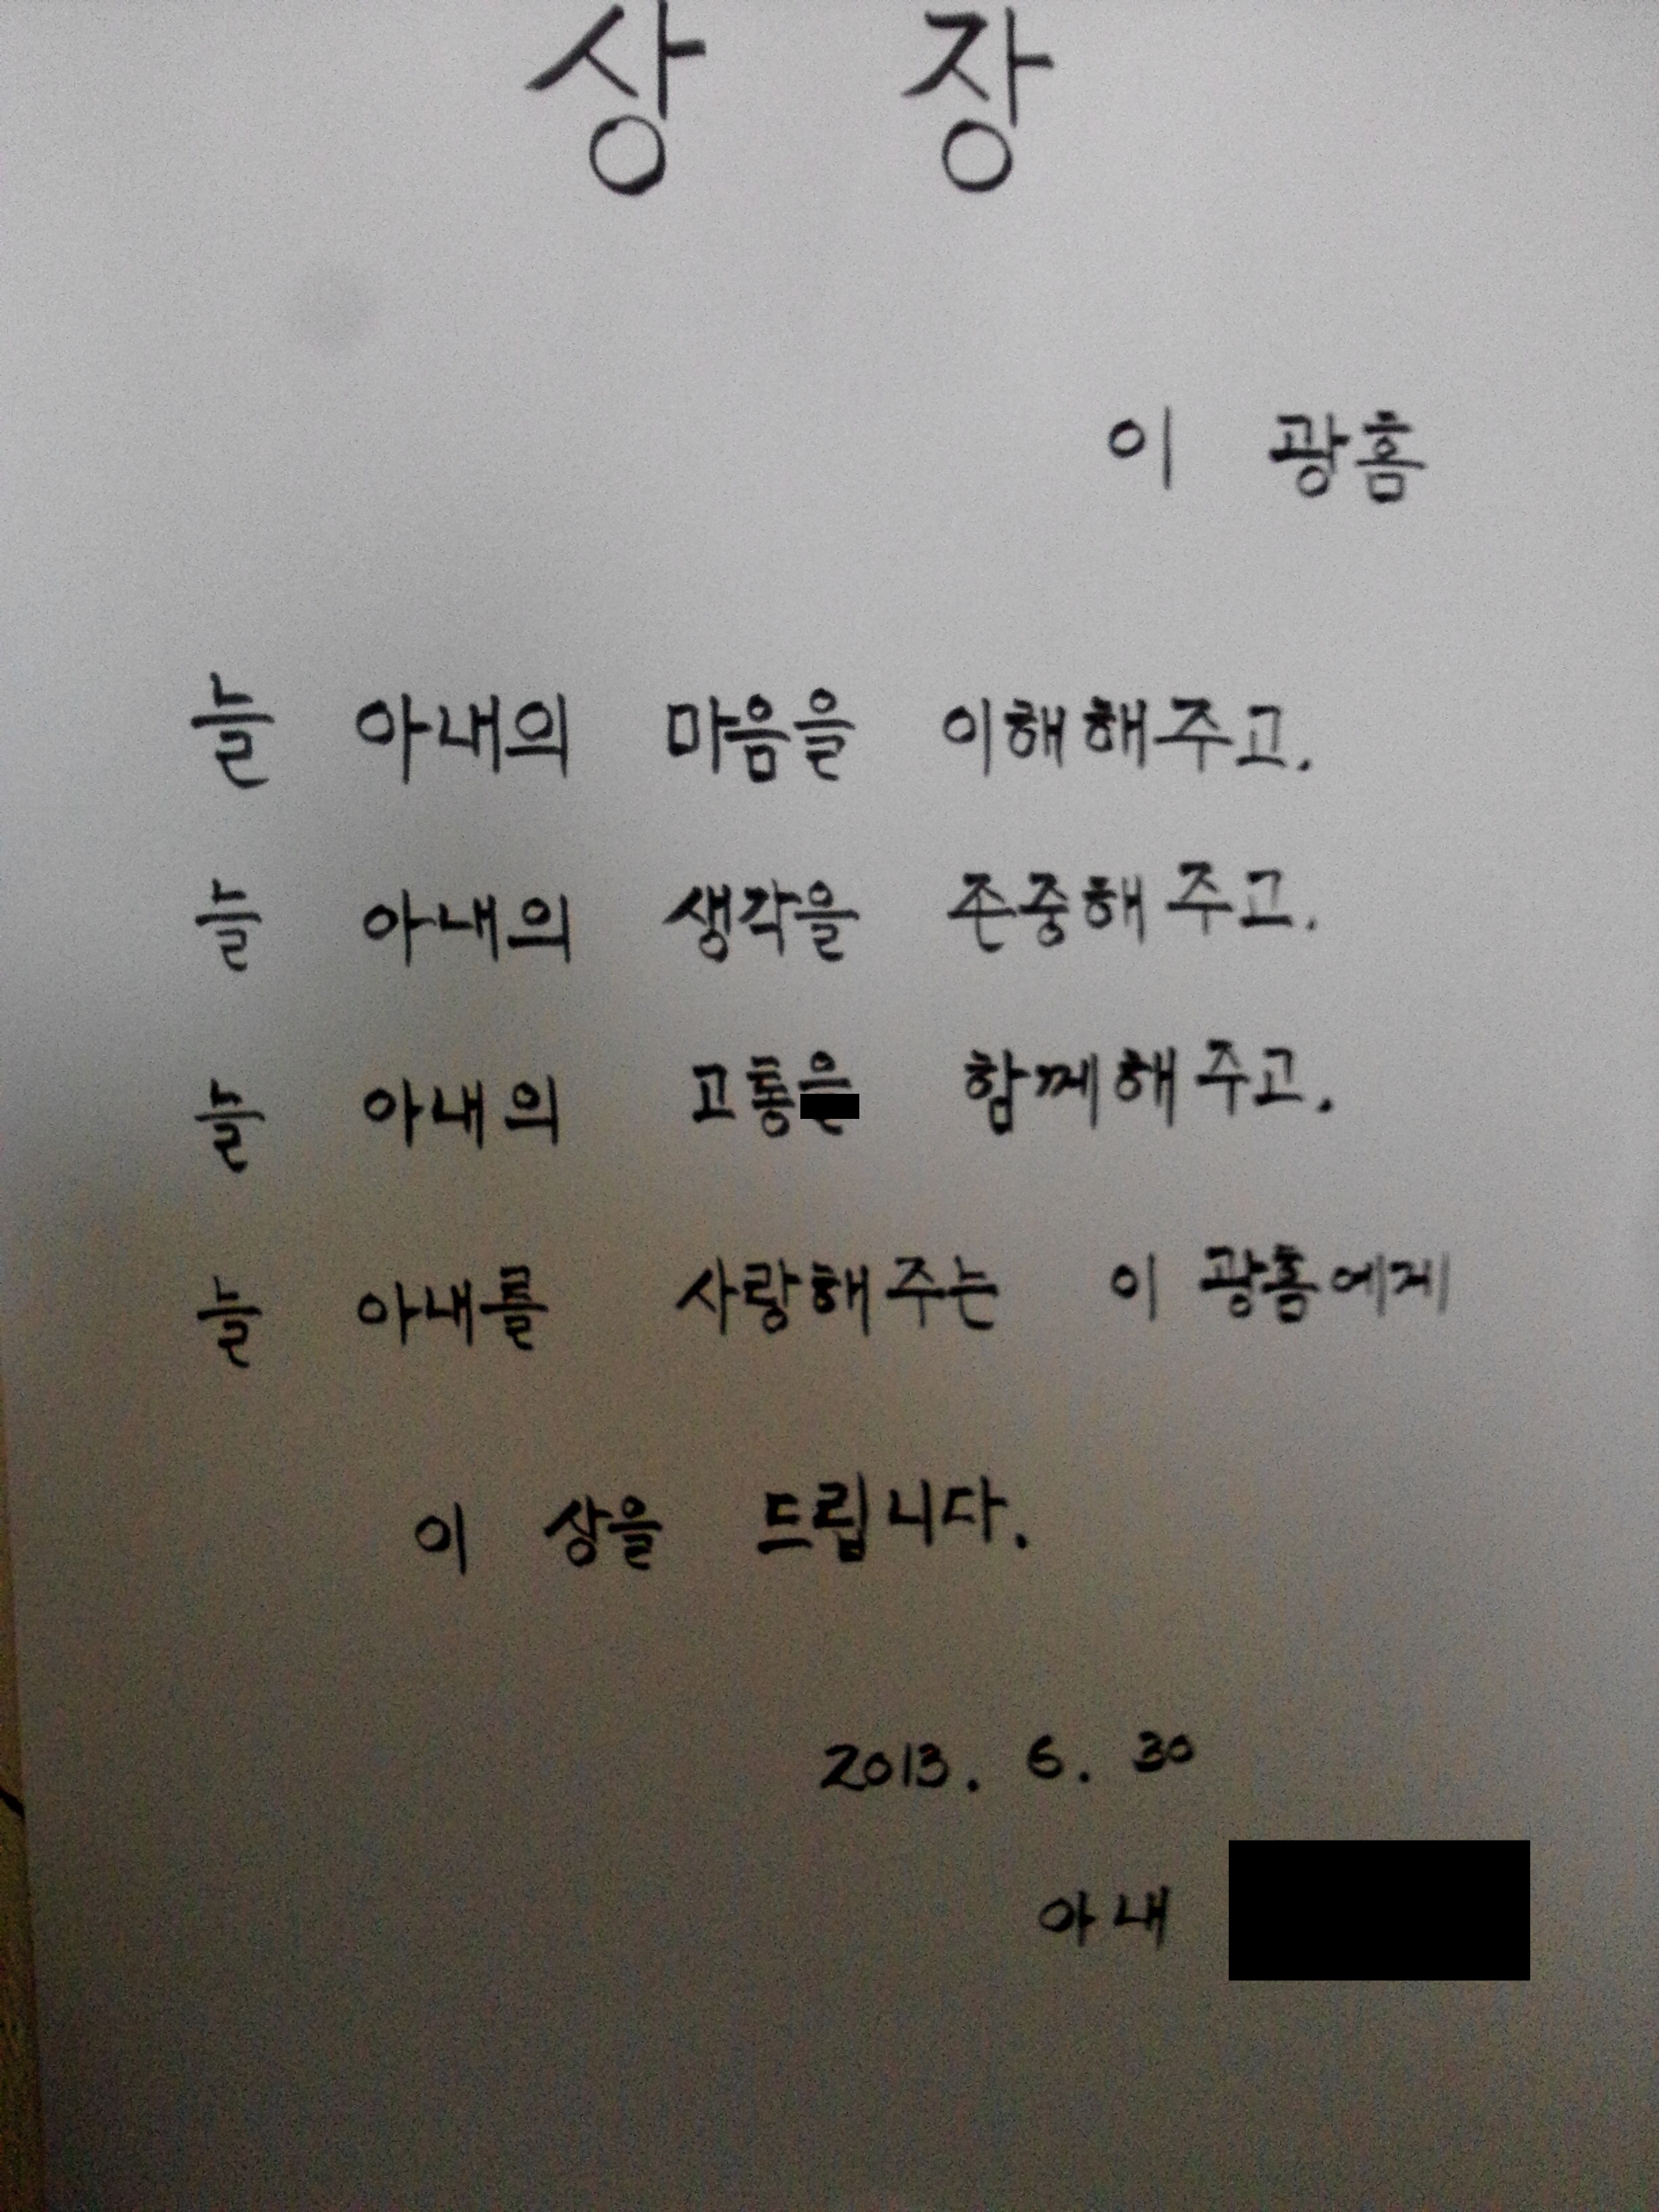 상 장
이 광흠
늘 아내의 마음을 이해해주고.
늘 아내의 생각을 존중해주고.
늘 아내의 함께해주고.
늘 아내를 사랑해주는 이 광흠에게
이 상을 드립니다.
2013. 6. 30
아내